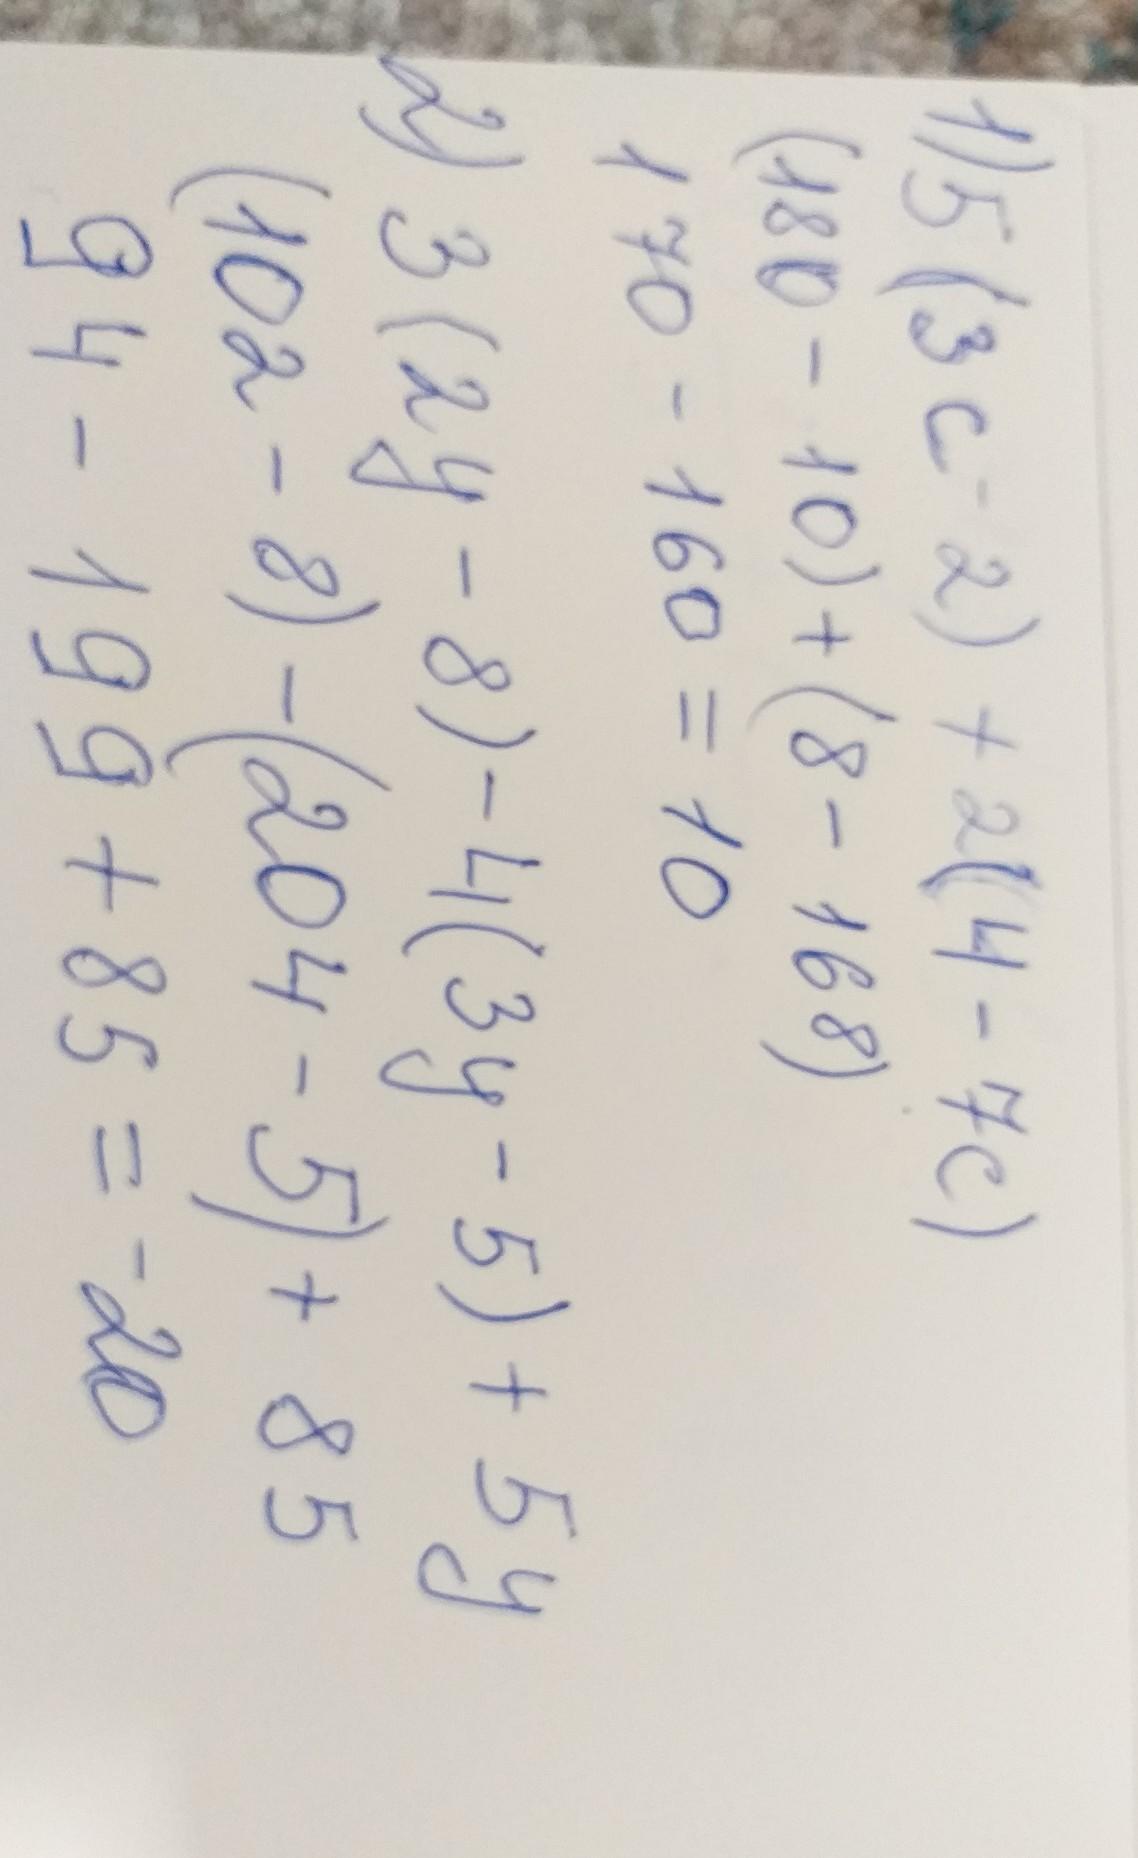 1) 5 (3c - 2) + 2(4 - 7c)
(180 - 10) + (8 - 168)
170 - 160 = 10
2) 3 (2y - 8) - 4(3y - 5) + 5y
(102 - 8) - (204 - 5) + 85
94 - 199 + 85 = -20